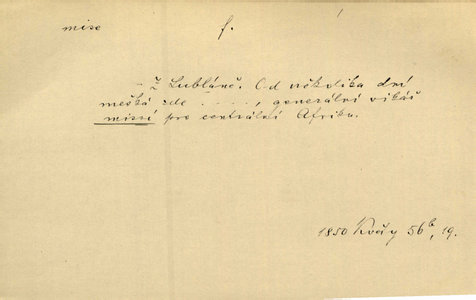 mise f.
Z Lublaně. Od několika dní
mešká zde . . . . , generální vikář
missí pro centrální Afriku.
1850 Květy 56b, 19.